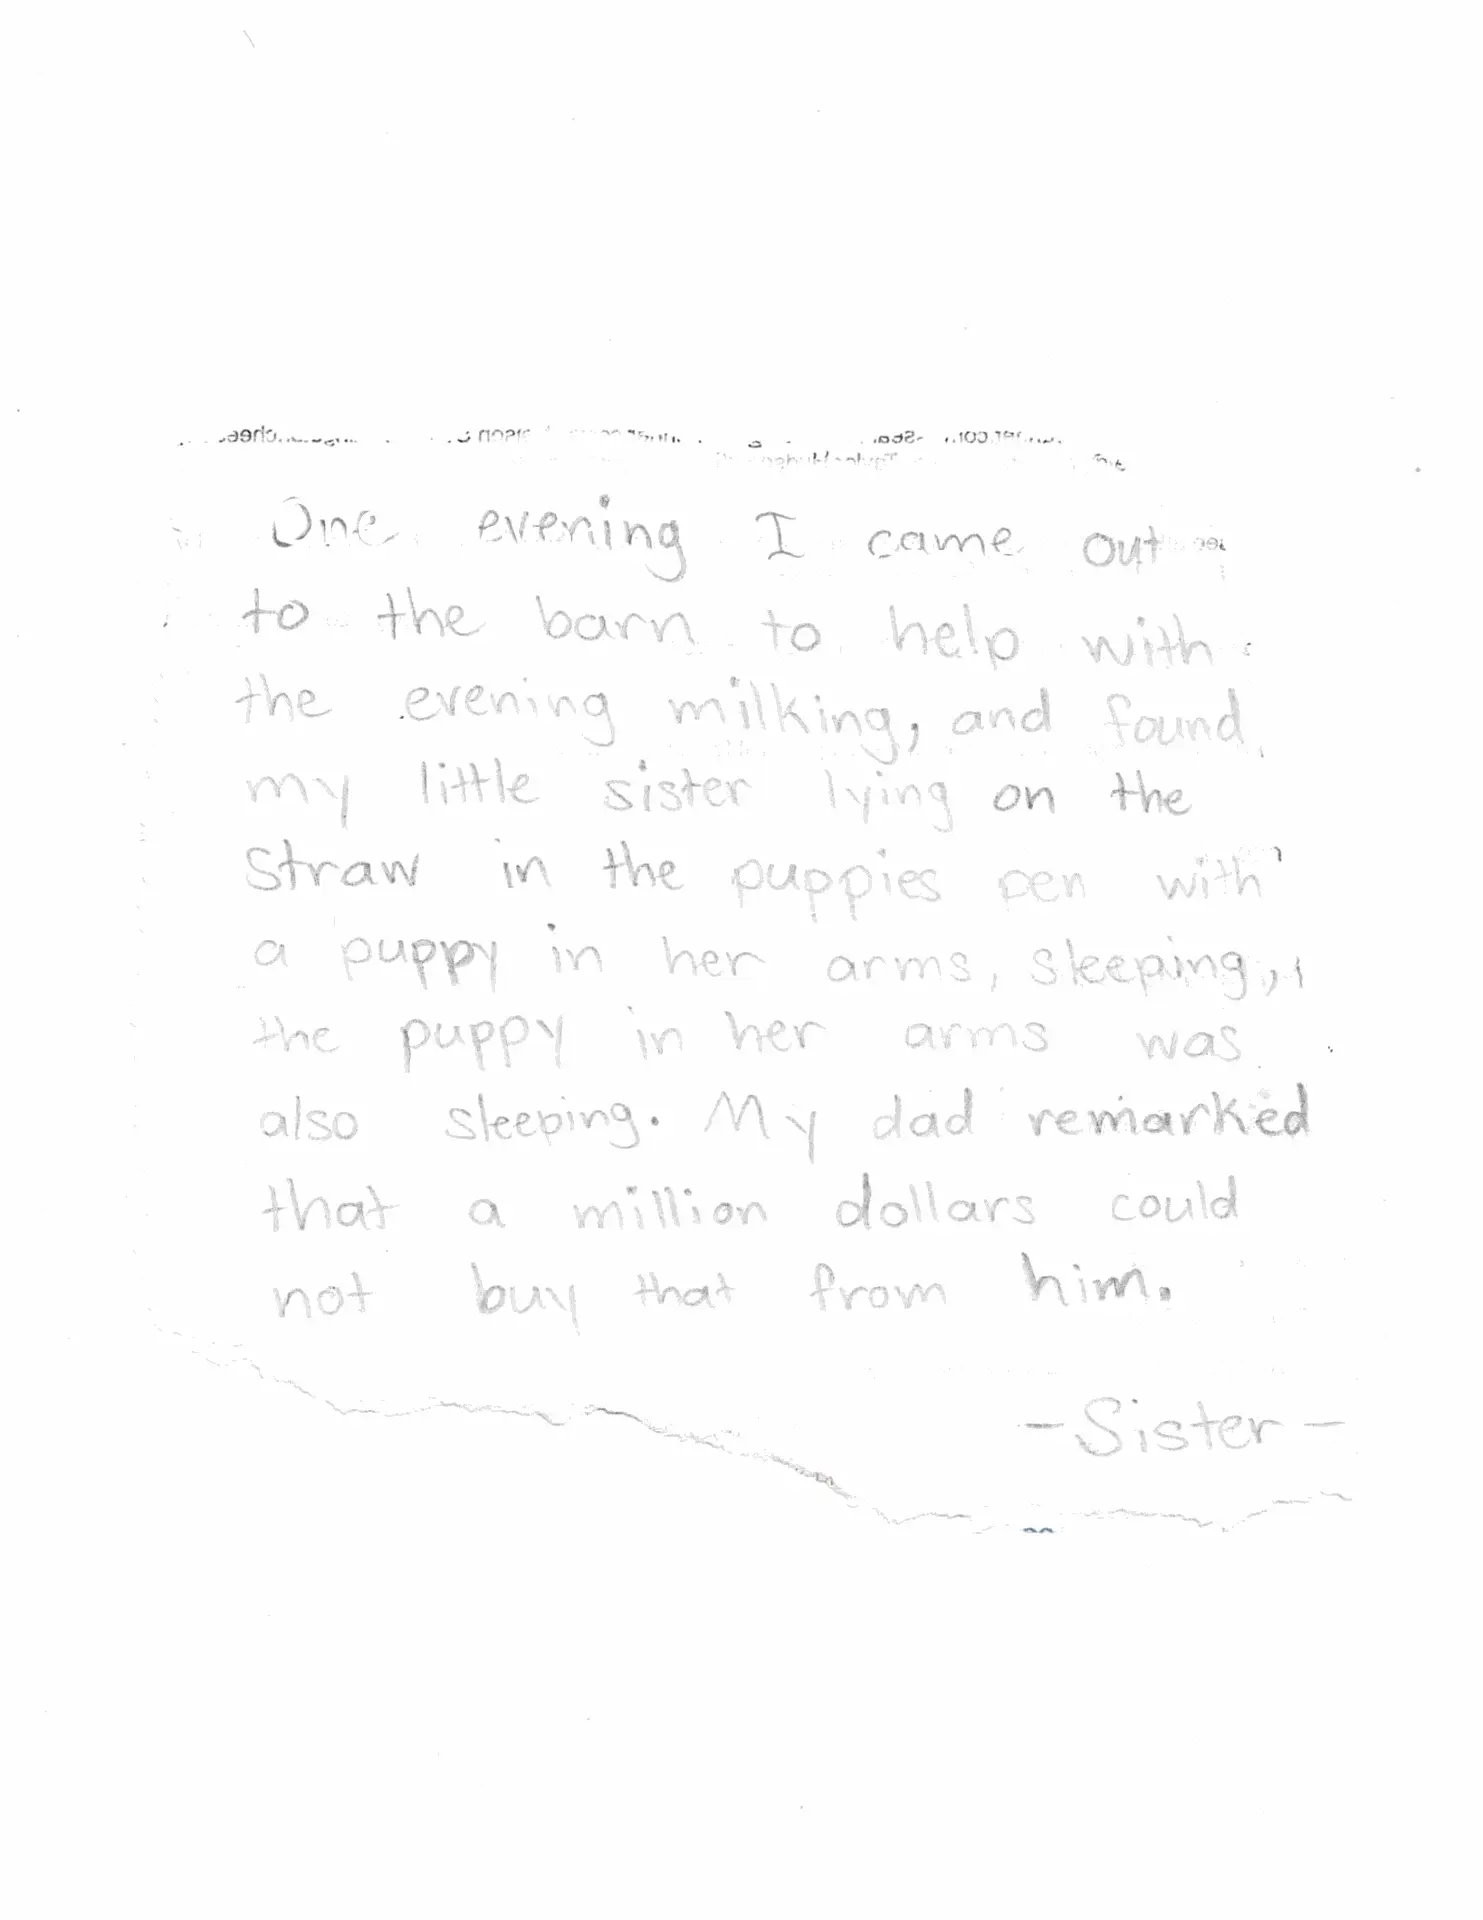 One evening I came out
to the barn to help with
the evening milking, and found
my little sister lying on the
straw in the puppies pen with
a puppy in her arms, sleeping,
the puppy in her arms was
also sleeping. My dad remarked
that a million dollars could
not buy that from him.
-Sister-